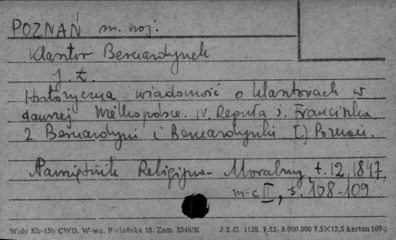 POZNAŃ m. woj.
Klasztor Bernardynek
J. Ł.
Historyczna wiadomość o klasztorach w
dawnej Wielkopolsce. IV. Reguła ś. Franciszka.
2. Bernardyni i Bernardynki [.) Poznań.
Pamiętnik Religijno-Moralny, t. 12, 1847,
m-c II, s. 108-109
Wzór Kb-15b CWD. W-wa. Bielańska 18. Zam. 8346/K J.Z.G. 1120. 7.53. 3.000.000 7.5×12,5 karton 160g